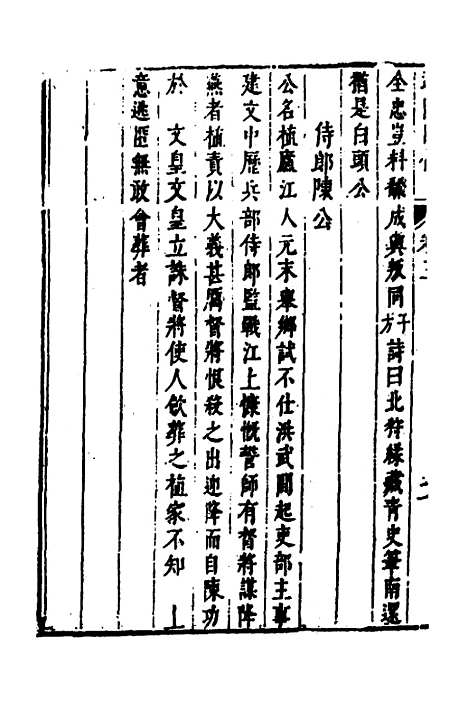 全忠豈料驂成輿叛同于方詩曰北狩緣藏青史筆南還
猶是白頭公
侍郎陳公
公名植廬江人元末舉鄉試不仕洪武間起吏部主事
建文中歷兵部侍郎監戰江上慷慨誓師有督將謀降
燕者植責以大義甚厲督將恨殺之出迎降而自陳功
於 文皇文皇立誅督將使人飲葬之植家不知 上
意逃匿無敢會葬者